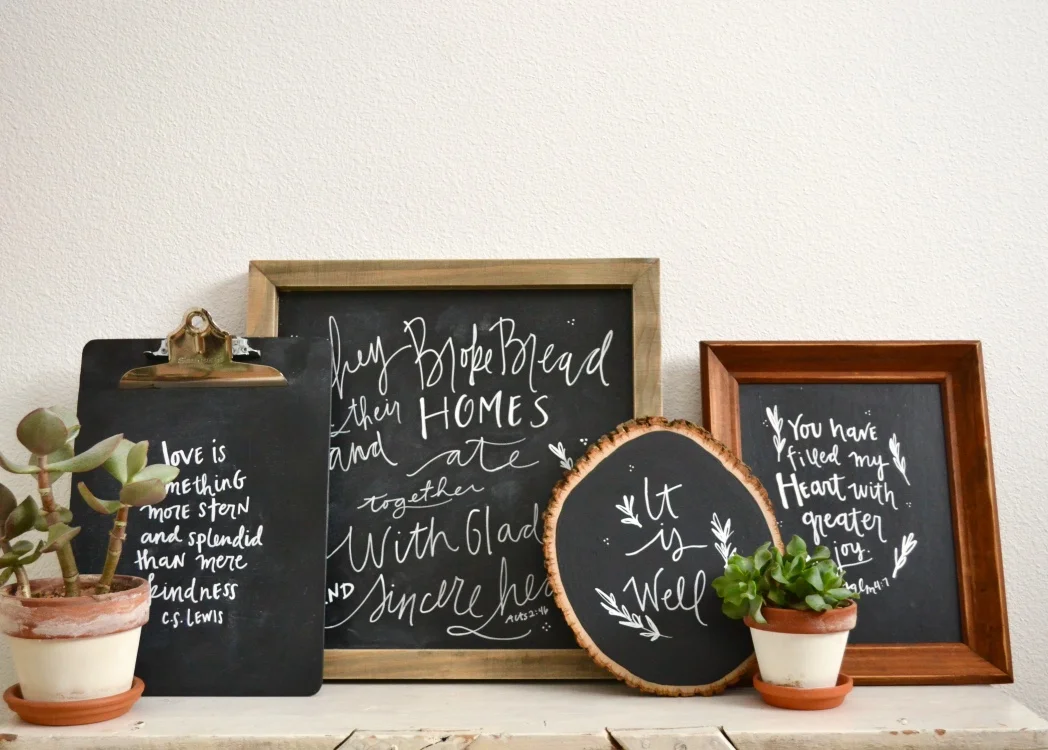 love is
mething
more stern
and splendid
than mere
kindness
C.S. Lewis
hey Broke Bread
their HOMES
and ate
together
With Glad
ND Sincere hea
Acts 2:46
It
is
Well
You have
filled my
Heart with
greater
joy.
alm 4:7